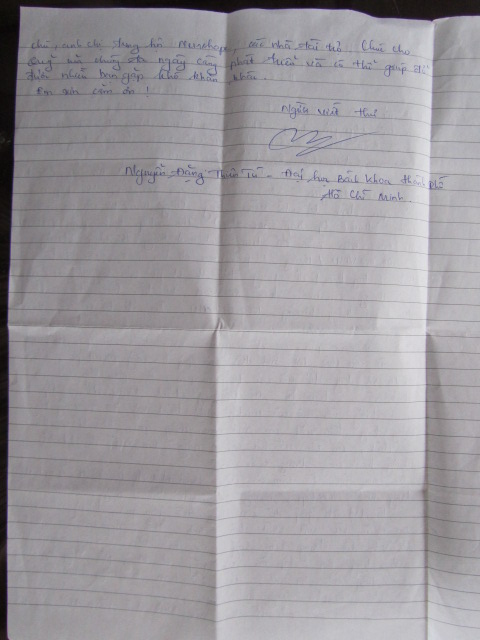 chú, anh chị trong hội Newhope, các nhà tài trợ. Chúc cho
quỹ của chúng ta ngày càng phát triển và có thể giúp đỡ
thêm nhiều bạn gặp khó khăn
Em xin cảm ơn !
Người viết thư
Nguyễn Đặng Tú - Đại học Bách Khoa thành phố
Hồ Chí Minh